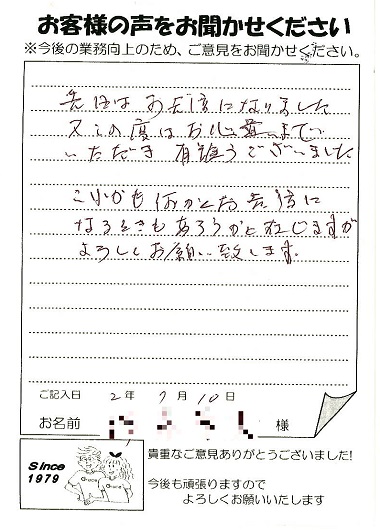 お客様の声をお聞かせください
※今後の業務向上のため、ご意見をお聞かせください。
先日はお世話になりました
又この度はお心遣いまで
いただき有難うございました
これからも何かとお世話に
なるときもあろうかと存じますが
よろしくお願い致します。
ご記入日 2年 7月 10日
お名前 様
Since
1979
貴重なご意見ありがとうございました!
今後も頑張りますので
よろしくお願いいたします